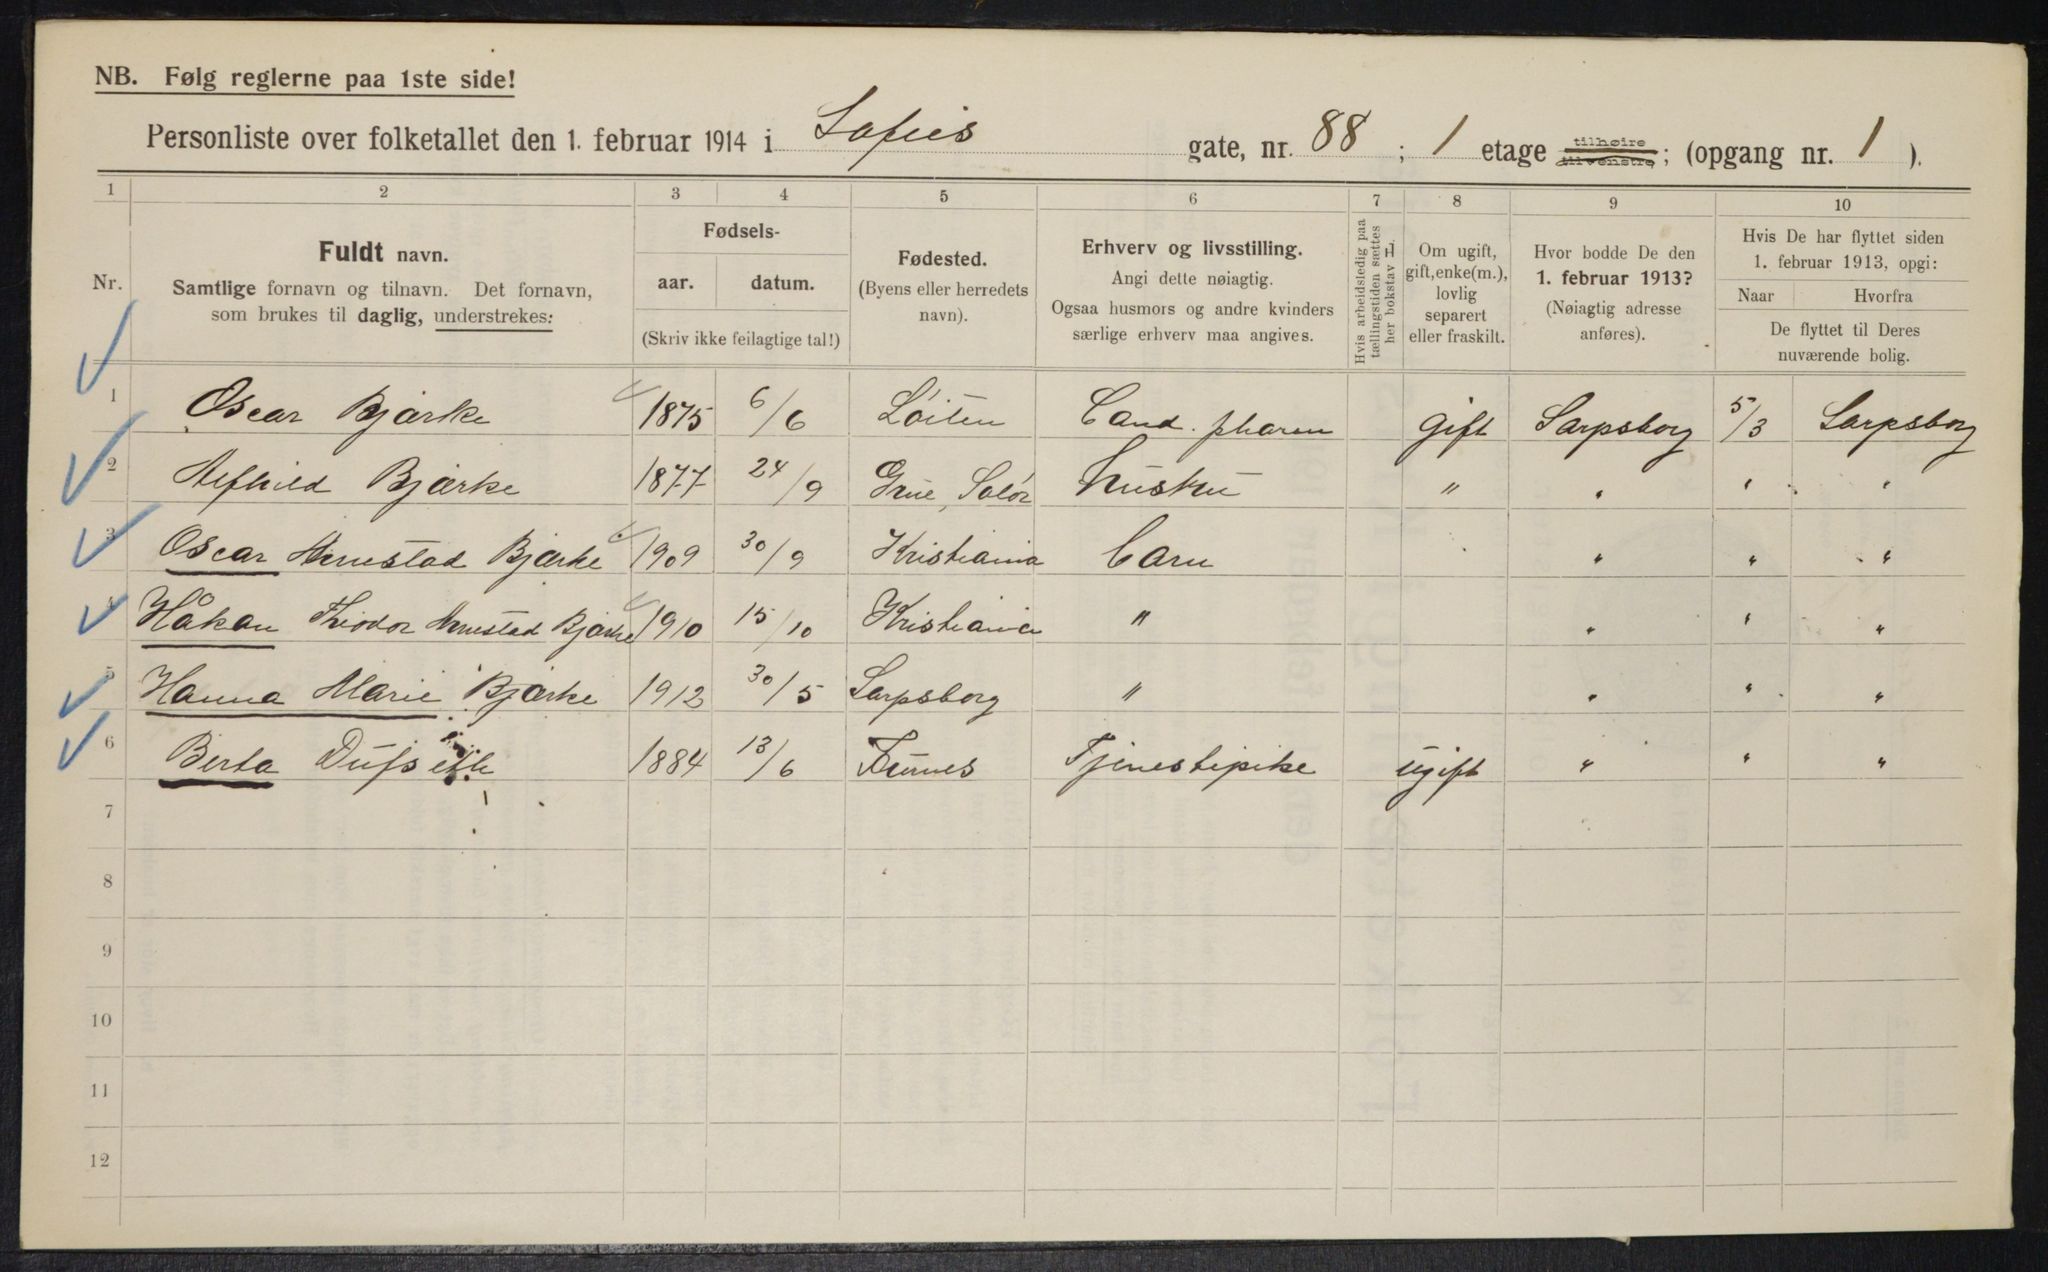 NB. Følg reglerne paa 1ste side!
Personliste over folketallet den 1. februar 1914 i Sofies gate, nr. 88 ; 1 etage tilhøire tilvenstre ; (opgang nr. 1 ).
1 2 3 4 5 6 7 8 9 10
Nr.
Fuldt navn.
Samtlige fornavn og tilnavn. Det fornavn,
som brukes til daglig, understrekes:
Fødsels-
aar. datum.
(Skriv ikke feilagtige tal!)
Fødested.
(Byens eller herredets
navn).
Erhverv og livsstilling.
Angi dette nøiagtig.
Ogsaa husmors og andre kvinders
særlige erhverv maa angives.
Hvis arbeidsledig paa
tællingstiden sættes
her bokstav L.
Om ugift,
gift, enke(m.),
lovlig
separert
eller fraskilt.
Hvor bodde De den
1. februar 1913?
(Nøiagtig adresse
anføres).
Hvis De har flyttet siden
1. februar 1913, opgi:
Naar Hvorfra
De flyttet til Deres
nuværende bolig.
1 Oscar Bjørke 1875 6/6 Løiten Cand. pharm gift Sarpsborg 5/3 Sarpsborg
2 Alfhild Bjørke 1877 24/9 Grue, Solør Hustru " " " "
3 Oscar Bjørke 1909 30/9 Kristiania Barn " " "
4 Håkon Theodor Bjørke 1910 15/10 Kristiania " " " "
5 Hanna Marie Bjørke 1912 30/5 Sarpsborg " " " "
6 Berta 1884 13/6 Furnes Tjenestepike ugift " " "
7
8
9
10
11
12